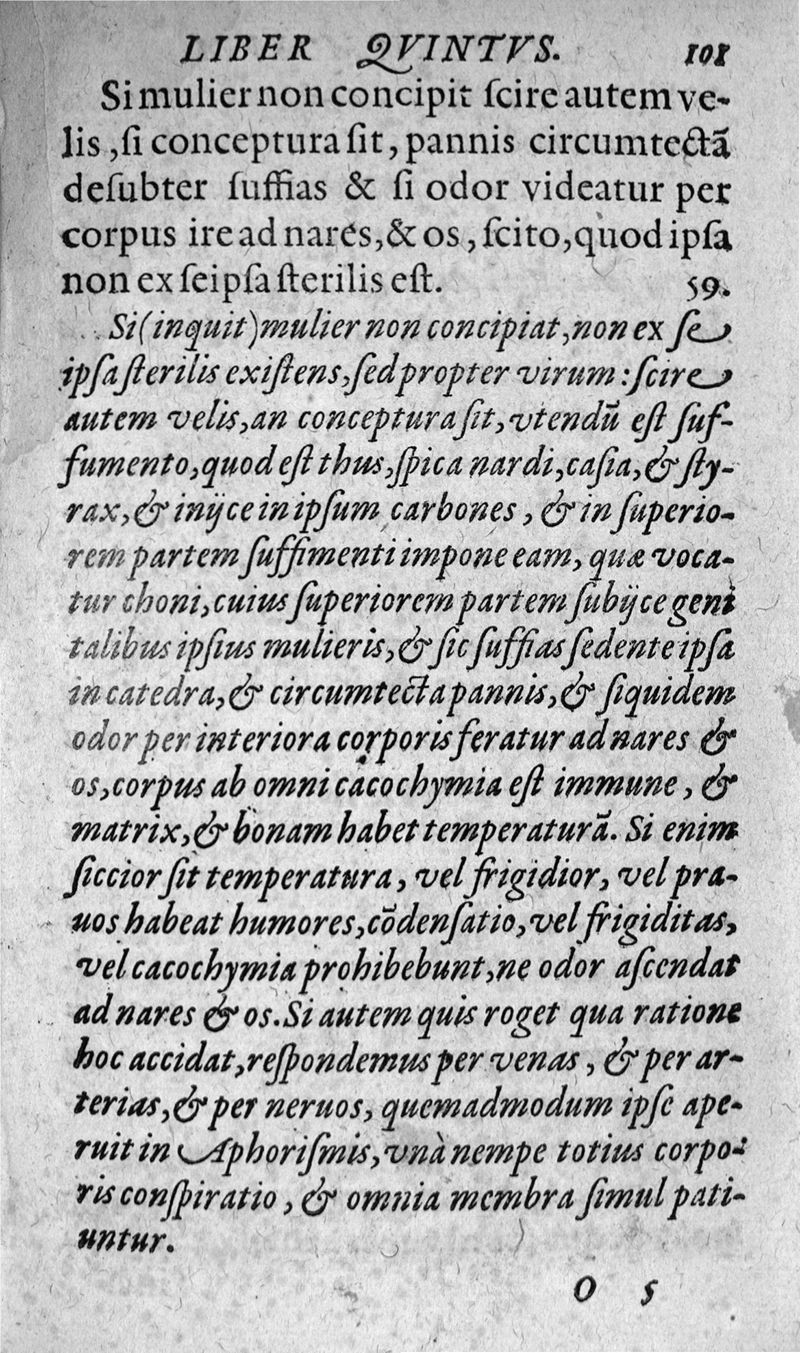 LIBER QVINTVS. 101
Si mulier non concipit ſcire autem ve-
lis, ſi conceptura ſit, pannis circumtectã
deſubter ſuffias & ſi odor videatur per
corpus ire ad nares, & os, ſcito, quòd ipſa
non ex ſeipſa ſterilis eſt. 59.
Si (inquit) mulier non concipiat, non ex ſe
ipſa ſterilis exiſtens, ſed propter virum: ſcire
autem velis, an conceptura ſit, vtendũ eſt ſuf-
fumento, quod eſt thus, ſpica nardi, caſia, & ſty-
rax, & inijce in ipſum carbones, & in ſuperio-
rem partem ſuffimenti impone eam, quæ voca-
tur choni, cuius ſuperiorem partem ſubijce geni
talibus ipſius mulieris, & ſic ſuffias ſedente ipſa
in catedra, & circumtecta pannis, & ſiquidem
odor per interiora corporis feratur ad nares &
os, corpus ab omni cacochymia eſt immune, &
matrix, & bonam habet temperaturã. Si enim
ſiccior ſit temperatura, vel frigidior, vel pra-
uos habeat humores, cõdenſatio, vel frigiditas,
vel cacochymia prohibebunt, ne odor aſcendat
ad nares & os. Si autem quis roget qua ratione
hoc accidat, reſpondemus per venas, & per ar-
terias, & per neruos, quemadmodum ipſe ape-
ruit in Aphoriſmis, vnà nempe totius corpo-
ris conſpiratio, & omnia membra ſimul pati-
untur.
O 5